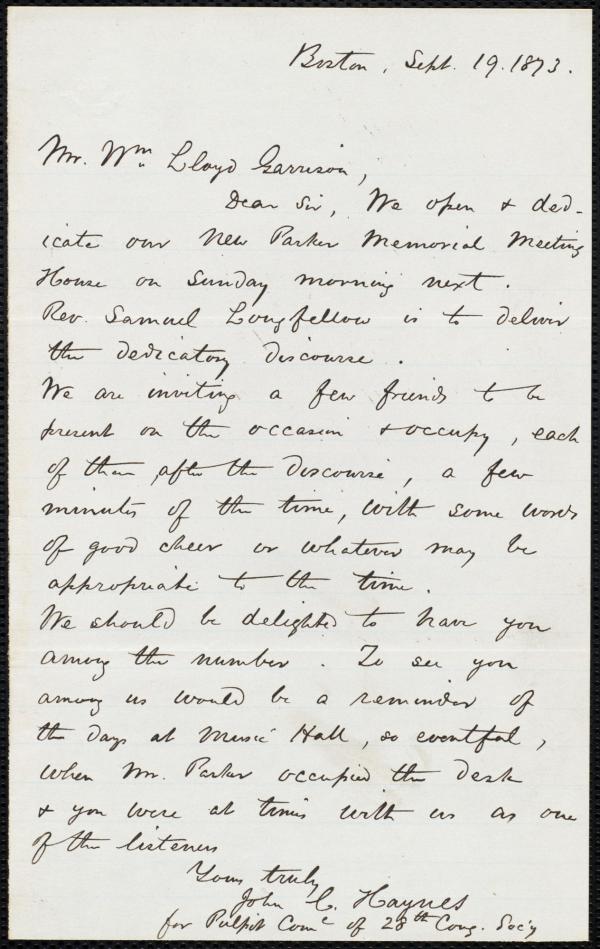 Boston, Sept. 19. 1873.
Mr. Wm. Lloyd Garrison,
Dear Sir, We open & ded-
icate our New Parker Memorial Meeting
House on Sunday morning next.
Rev. Samuel Longfellow is to deliver
the dedicatory discourse.
We are inviting a few friends to be
present on the occasion & occupy, each
of them, after the discourse, a few
minutes of the time, with some words
of good cheer or whatever may be
appropriate to the time.
We should be delighted to have you
among the number. To see you
among us would be a reminder of
the days at Music Hall, so eventful,
when Mr. Parker occupied the desk
& you were at times with us as one
of the listeners
Yours truly
John C. Haynes
for Pulpit Come of 28th Cong. Soc'y